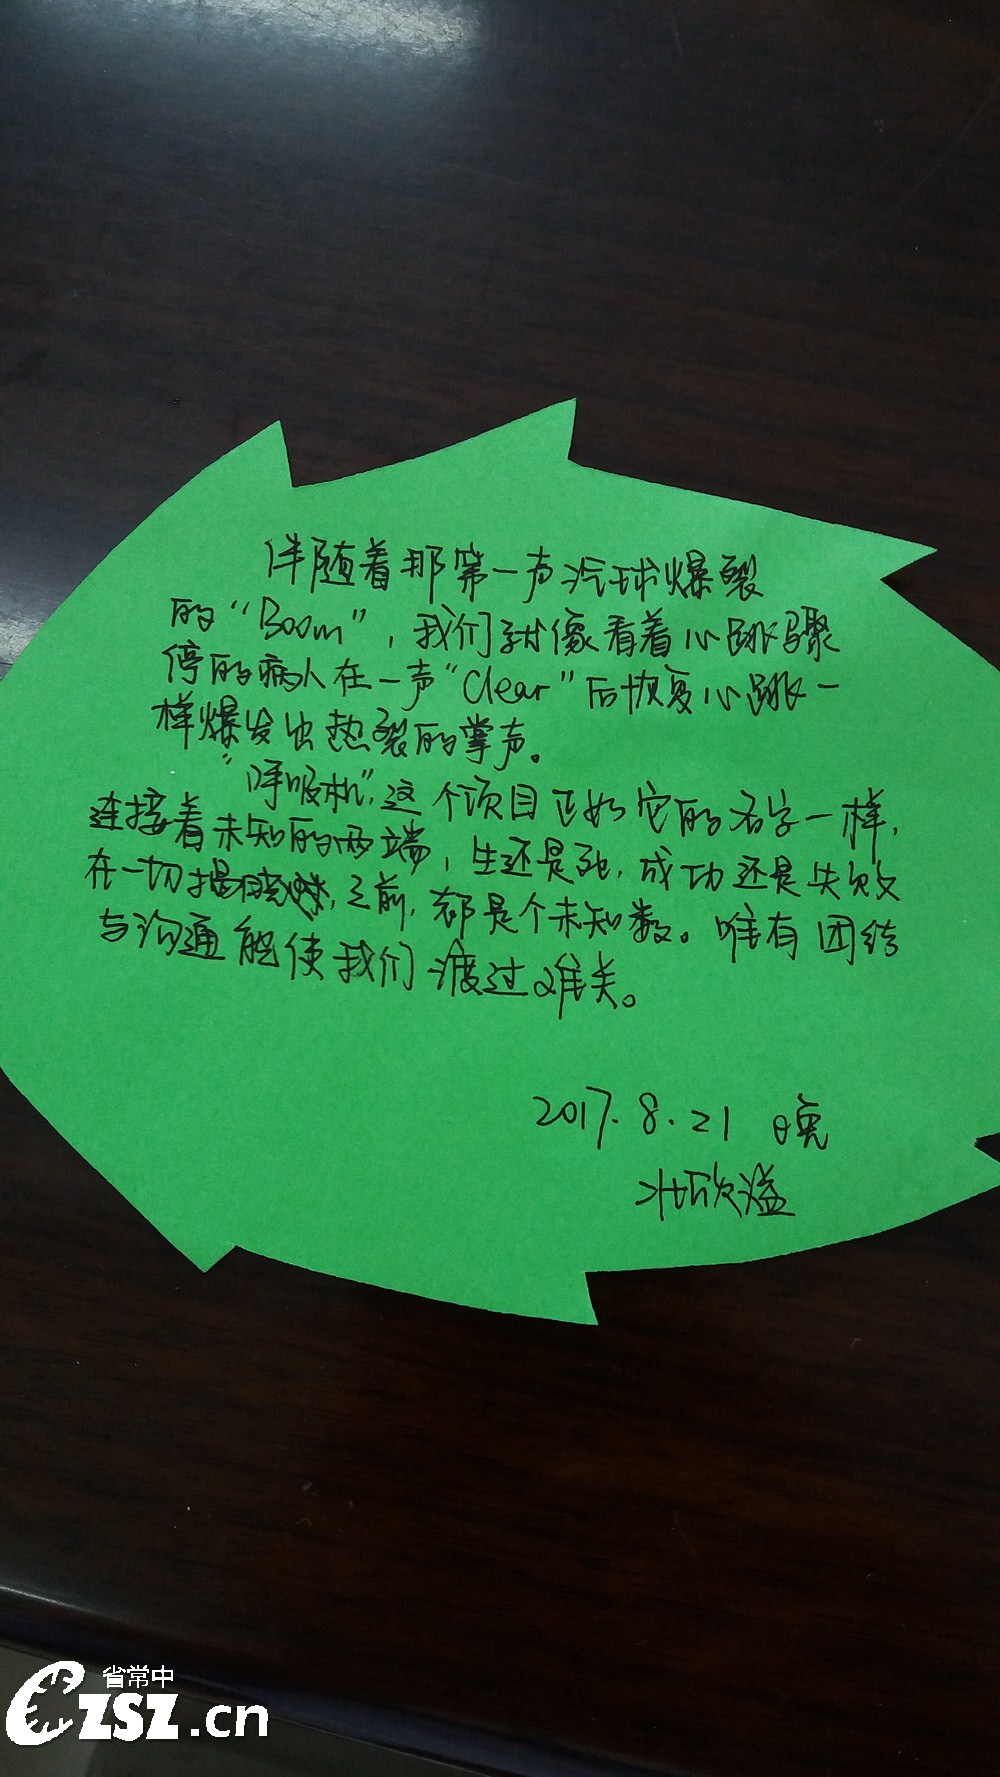 伴随着那第一声汽球爆裂
的“Boom”，我们就像看着心跳骤
停的病人在一声“Clear”后恢复心跳一
样爆发出热裂的掌声。
“呼吸机”，这个项目正如它的名字一样，
连接着未知的两端，生还是死，成功还是失败
在一切揭晓之前，都是个未知数。唯有团结
与沟通能使我们渡过难关。
2017.8.21 晚
壮欣溢
省常中
CZSZ.cn